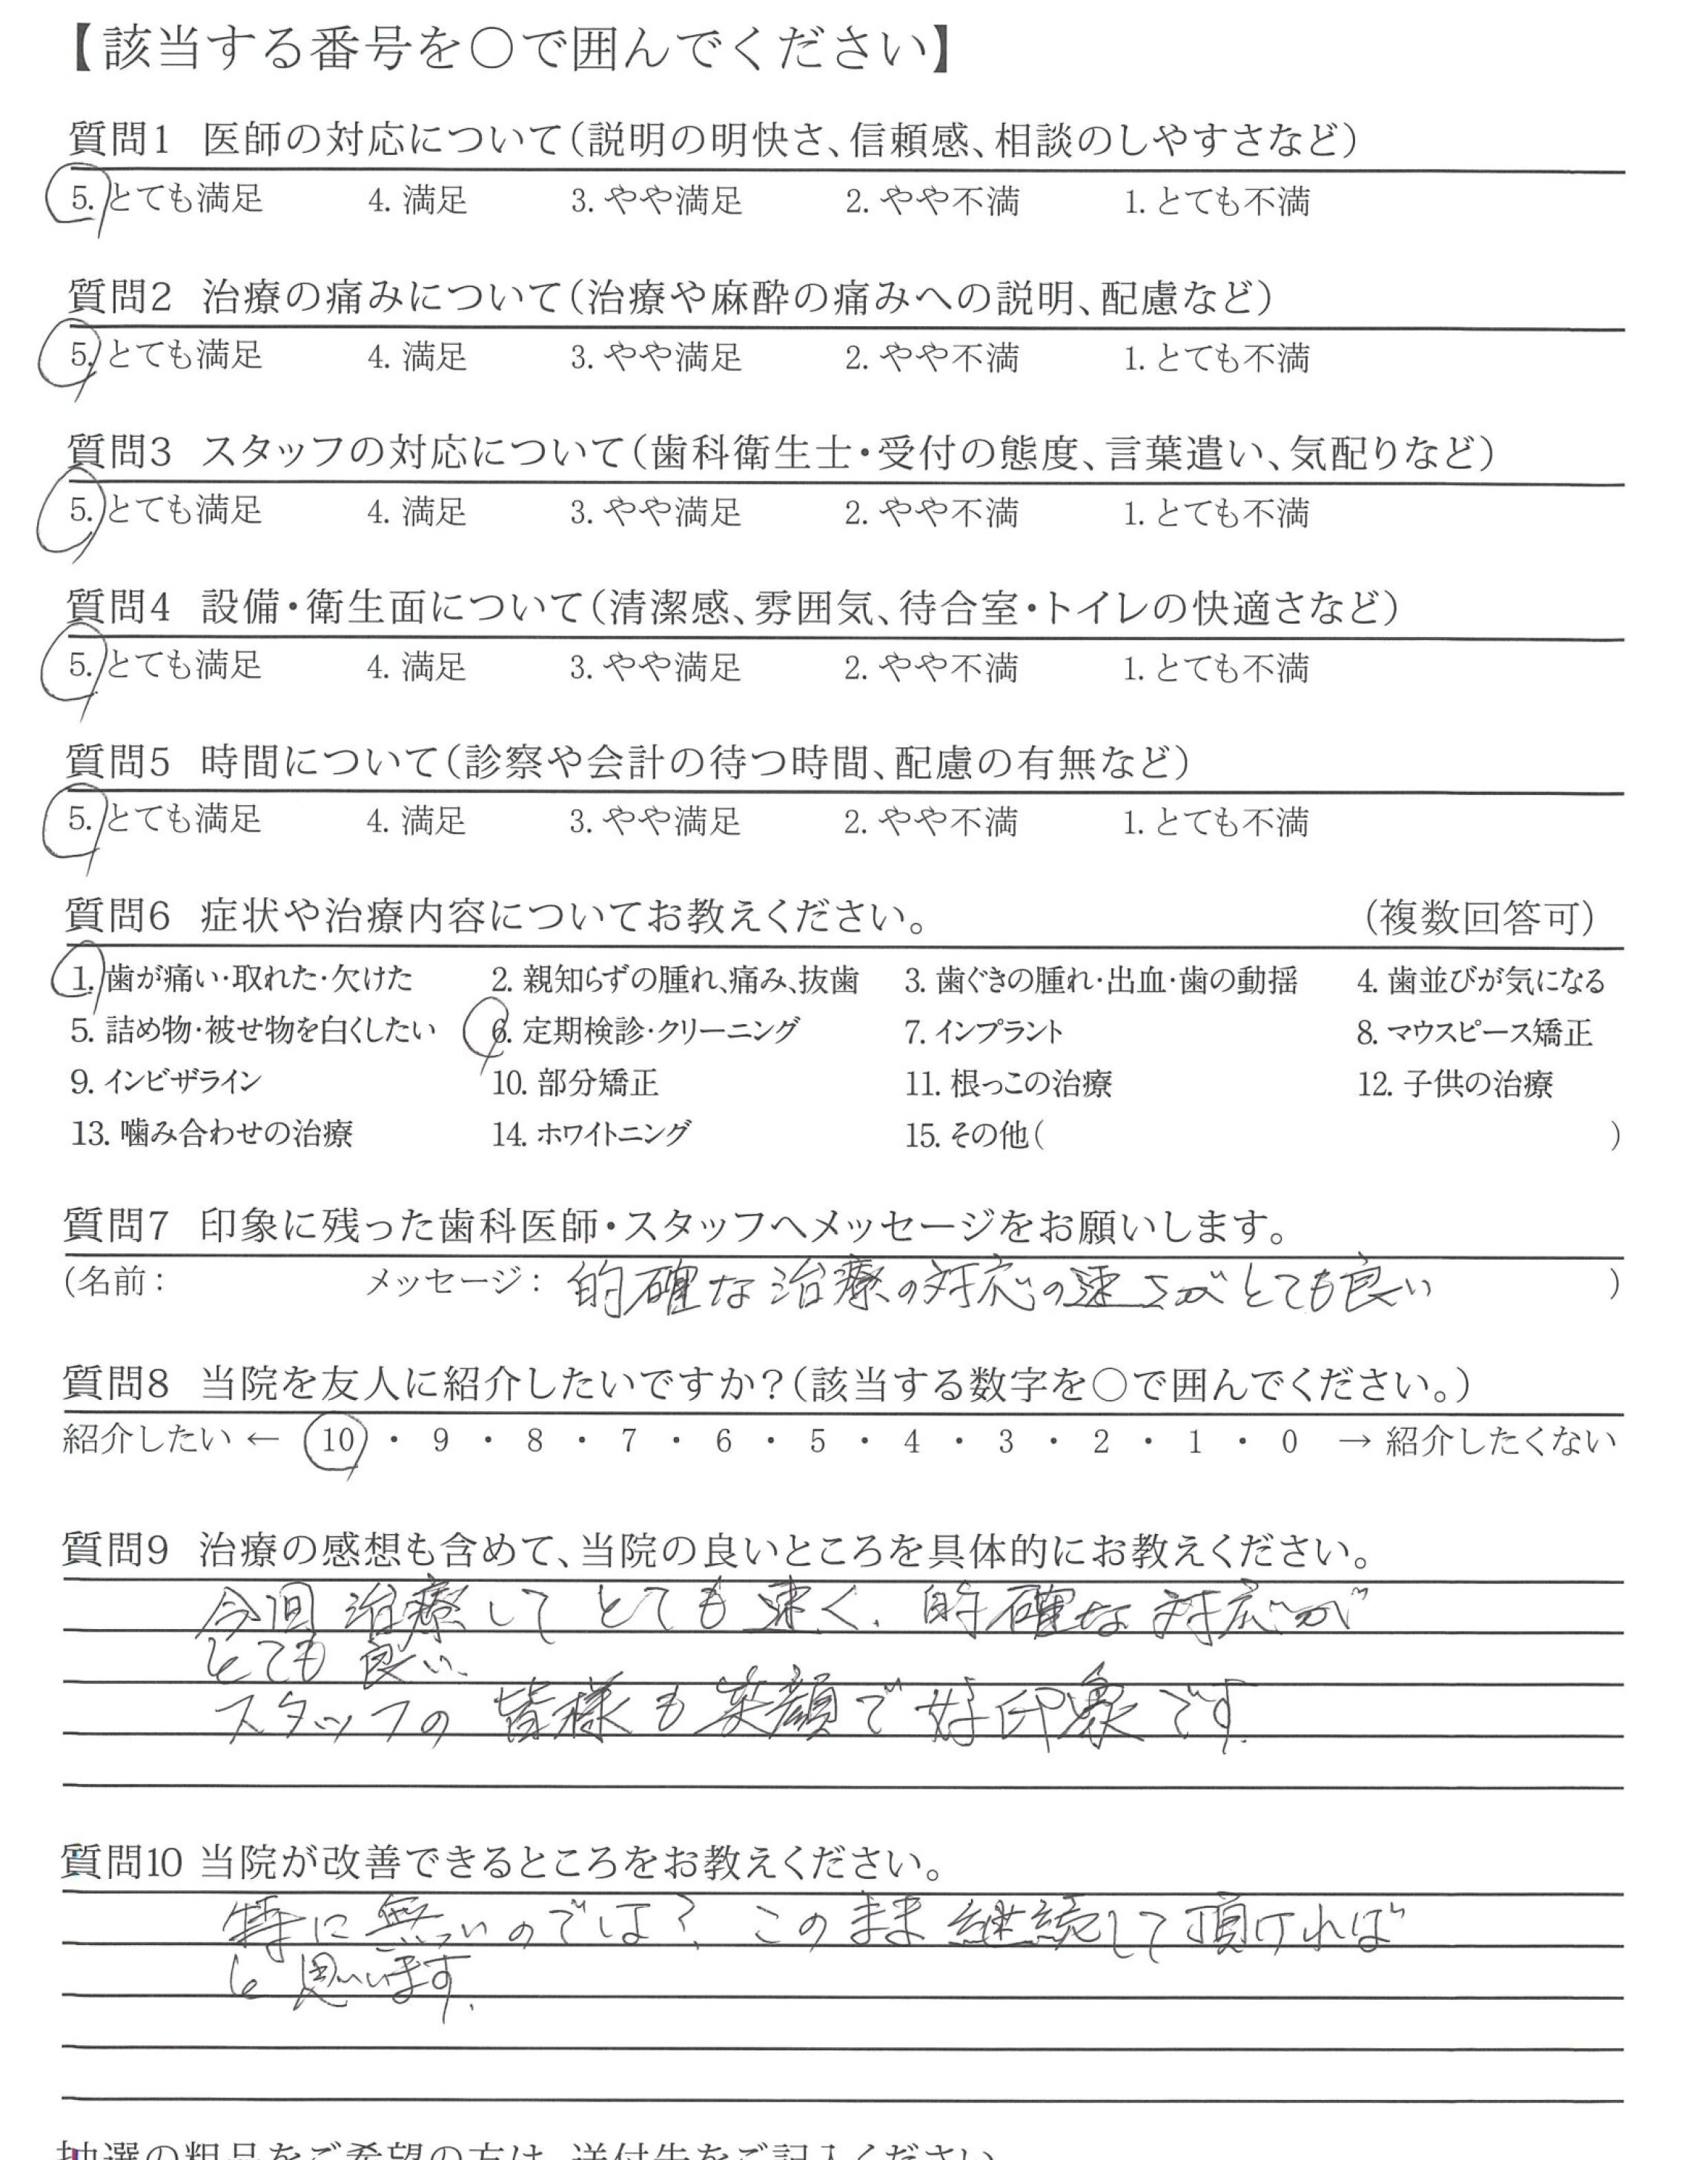 【該当する番号を○で囲んでください】
質問1 医師の対応について(説明の明快さ、信頼感、相談のしやすさなど)
5. とても満足 4. 満足 3. やや満足 2. やや不満 1. とても不満
質問2 治療の痛みについて(治療や麻酔の痛みへの説明、配慮など)
5. とても満足 4. 満足 3. やや満足 2. やや不満 1. とても不満
質問3 スタッフの対応について(歯科衛生士・受付の態度、言葉遣い、気配りなど)
5. とても満足 4. 満足 3. やや満足 2. やや不満 1. とても不満
質問4 設備・衛生面について(清潔感、雰囲気、待合室・トイレの快適さなど)
5. とても満足 4. 満足 3. やや満足 2. やや不満 1. とても不満
質問5 時間について(診察や会計の待つ時間、配慮の有無など)
5. とても満足 4. 満足 3. やや満足 2. やや不満 1. とても不満
質問6 症状や治療内容についてお教えください。 (複数回答可)
1. 歯が痛い・取れた・欠けた 2. 親知らずの腫れ、痛み、抜歯 3. 歯ぐきの腫れ・出血・歯の動揺 4. 歯並びが気になる
5. 詰め物・被せ物を白くしたい 6. 定期検診・クリーニング 7. インプラント 8. マウスピース矯正
9. インビザライン 10. 部分矯正 11. 根っこの治療 12. 子供の治療
13. 噛み合わせの治療 14. ホワイトニング 15. その他( )
質問7 印象に残った歯科医師・スタッフへメッセージをお願いします。
(名前: メッセージ: 的確な治療の対応の速さがとても良い )
質問8 当院を友人に紹介したいですか?(該当する数字を○で囲んでください。)
紹介したい ← 10 ・ 9 ・ 8 ・ 7 ・ 6 ・ 5 ・ 4 ・ 3 ・ 2 ・ 1 ・ 0 → 紹介したくない
質問9 治療の感想も含めて、当院の良いところを具体的にお教えください。
今回 治療して とても 速く、的確な 対応が
とても 良い、
スタッフの 皆様も 笑顔で 好印象です。
質問10 当院が改善できるところをお教えください。
特に無いのでは? このまま 継続して頂ければ
と思います。
抽選の粗品をご希望の方は、送付先をご記入ください